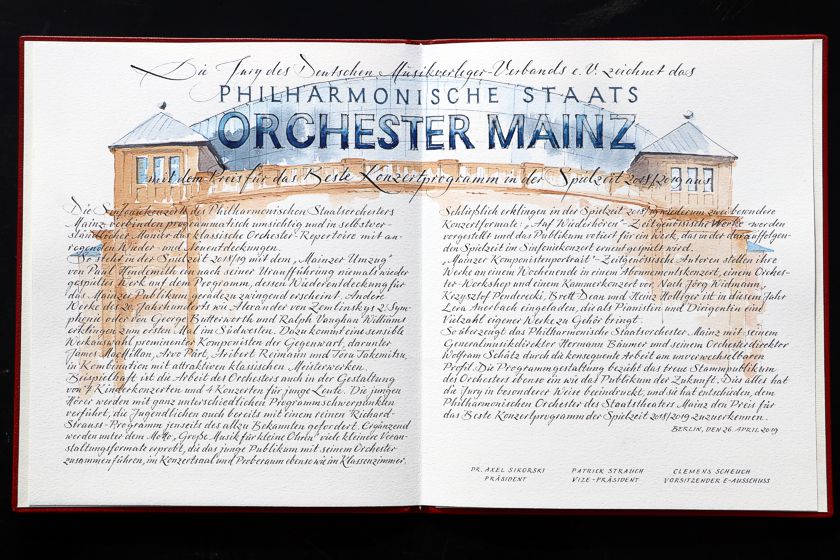 Die Jury des Deutschen Musikverleger-Verbands e.V. zeichnet das
PHILHARMONISCHE STAATS
ORCHESTER MAINZ
mit dem Preis für das Beste Konzertprogramm in der Spielzeit 2018/2019 aus.
Die Sinfoniekonzerte des Philharmonischen Staatsorchesters
Mainz verbinden programmatisch umsichtig und in selbstver-
ständlicher Manier das klassische Orchester-Repertoire mit an-
regenden Wieder- und Neuentdeckungen.
So steht in der Spielzeit 2018/19 mit dem „Mainzer Umzug"
von Paul Hindemith ein nach seiner Uraufführung niemals wieder
gespieltes Werk auf dem Programm, dessen Wiederentdeckung für
das Mainzer Publikum geradezu zwingend erscheint. Andere
Werke des 20. Jahrhunderts wie Alexander von Zemlinskys 2. Sym-
phonie oder von George Butterworth und Ralph Vaughan Williams
erklingen zum ersten Mal im Südwesten. Dazu kommt eine sensible
Werkauswahl prominenter Komponisten der Gegenwart, darunter
James MacMillan, Arvo Pärt, Aribert Reimann und Toru Takemitsu,
in Kombination mit attraktiven klassischen Meisterwerken.
Beispielhaft ist die Arbeit des Orchesters auch in der Gestaltung
von Kinderkonzerten und Konzerten für junge Leute. Die jungen
Hörer werden mit ganz unterschiedlichen Programmschwerpunkten
verführt, die Jugendlichen auch bereits mit einem reinen Richard-
Strauss-Programm jenseits des allzu Bekannten gefordert. Ergänzend
werden unter dem Motto „Große Musik für kleine Ohren" viele kleinere Veran-
staltungsformate erprobt, die das junge Publikum mit seinem Orchester
zusammenführen, im Konzertsaal und Proberaum ebenso wie im Klassenzimmer.
Schließlich erklingen in der Spielzeit 2018/19 wiederum zwei besondere
Konzertformate: „Auf Wiederhören" – Zeitgenössische Werke werden
vorgestellt und das Publikum votiert für ein Werk, das in der darauffolgen-
den Spielzeit im Sinfoniekonzert erneut gespielt wird.
„Mainzer Komponistenportrait" – Zeitgenössische Autoren stellen ihre
Werke an einem Wochenende in einem Abonnementskonzert, einem Orches-
ter-Workshop und einem Kammerkonzert vor. Nach Jörg Widmann,
Krzysztof Penderecki, Brett Dean und Heinz Holliger ist in diesem Jahr
Lera Auerbach eingeladen, die als Pianistin und Dirigentin eine
Vielzahl eigener Werke zu Gehör bringt.
So überzeugt das Philharmonische Staatsorchester Mainz mit seinem
Generalmusikdirektor Hermann Bäumer und seinem Orchesterdirektor
Wolfram Schätz durch die konsequente Arbeit am unverwechselbaren
Profil. Die Programmgestaltung bezieht das treue Stammpublikum
des Orchesters ebenso ein wie das Publikum der Zukunft. Dies alles hat
die Jury in besonderer Weise beeindruckt, und sie hat entschieden, dem
Philharmonischen Orchester des Staatstheaters Mainz den Preis für
das Beste Konzertprogramm der Spielzeit 2018/2019 zuzuerkennen.
BERLIN, DEN 26. APRIL 2019
DR. AXEL SIKORSKI PATRICK STRAUCH CLEMENS SCHEUCH
PRÄSIDENT VIZE-PRÄSIDENT VORSITZENDER E-AUSSCHUSS